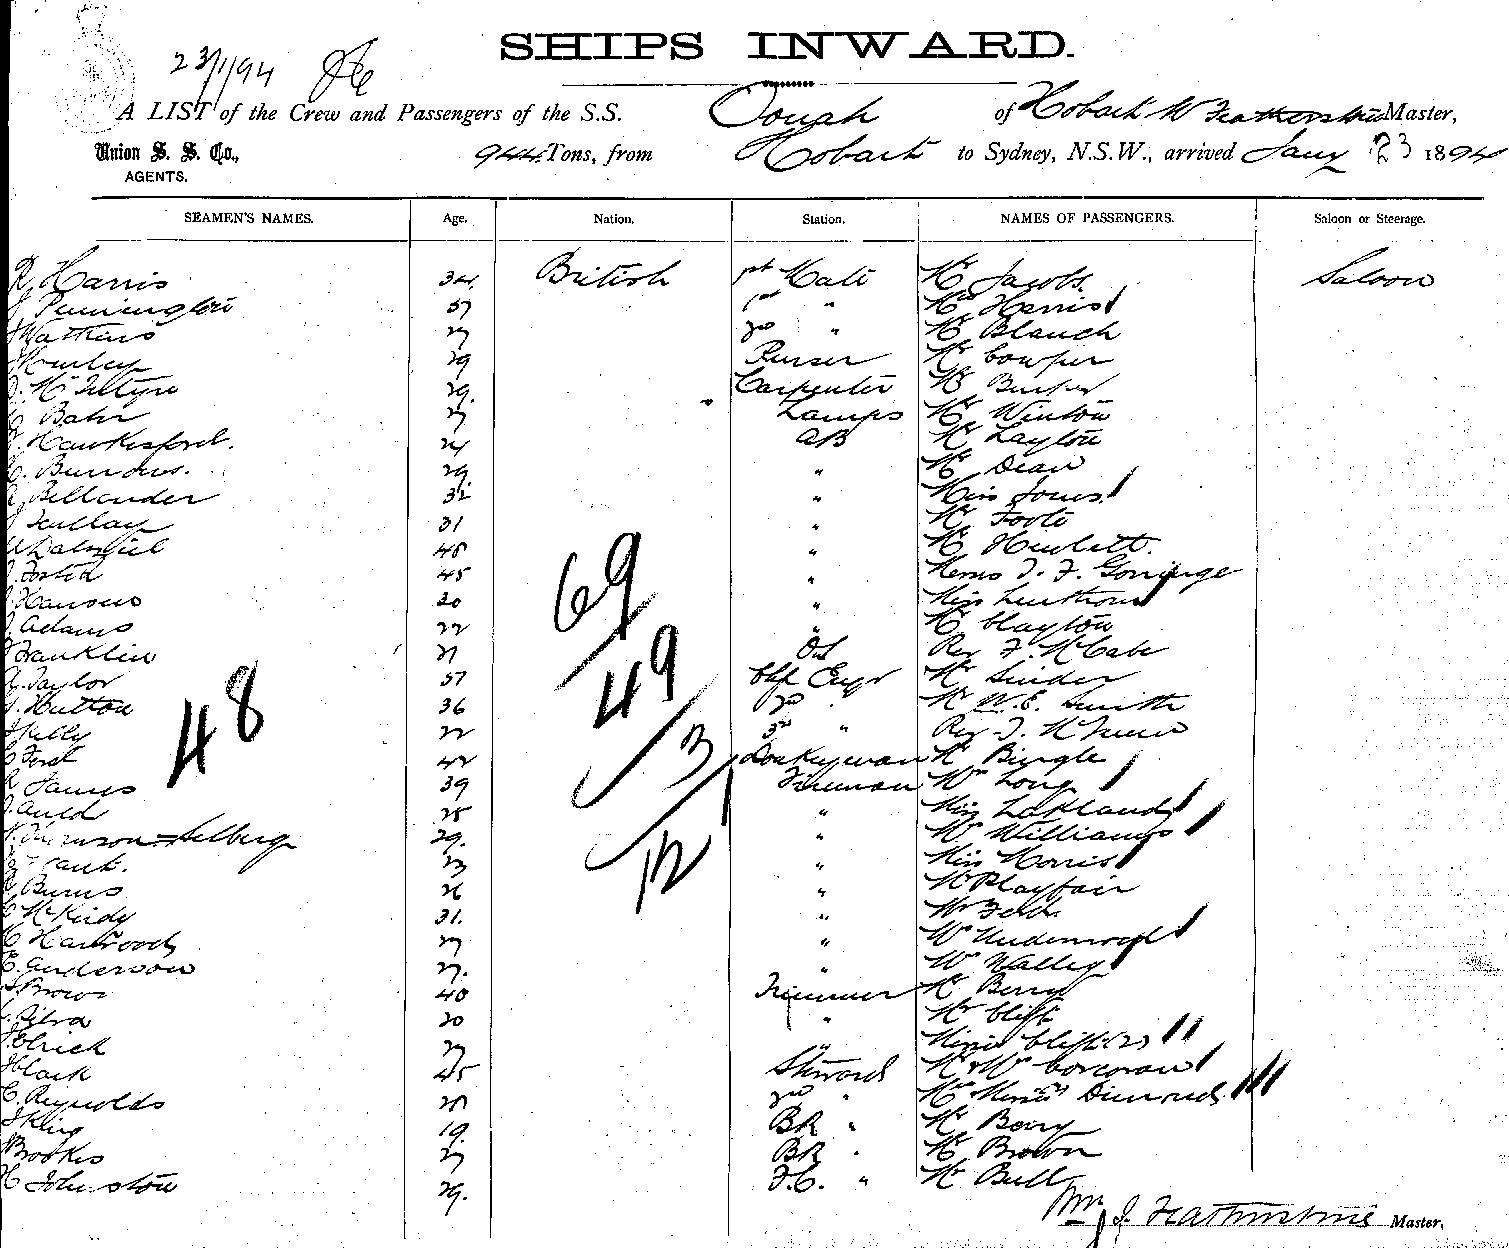 SHIPS INWARD.
23/1/94
A LIST of the Crew and Passengers of the S.S. Oonah of Hobart W Featherstone Master,
Union S. S. Co., 944 Tons, from Hobart to Sydney, N.S.W., arrived Jany 23 1894
AGENTS.
SEAMEN'S NAMES. Age. Nation. Station. NAMES OF PASSENGERS. Saloon or Steerage.
R Harris 34 British 1st Mate Mr Jacobs. Saloon
J Pennington 57 " Mrs Harris
Watkins 27 " Mr Blanch
Hurley 29 Purser Mr Cowper
McIntyre 29. Carpenter Mr
Bahr 27 " Lamps Mr Winton
Hawkesford. 24 AB Mr Layton
Burrows. 29. " Mr Dean
Bellander 32 " Miss Jones
31 " Mr Foote
Dalziel 48 " Mr Hewlett.
Foster 45 " T. F. Gorringe
Hansens 20 " Miss
Adams 22 " Mr Clayton
Franklin 21 OS Rev F. McCabe
Taylor 57 Chf Engr Mr
Hutton 36 2nd " Mr W. E. Smith
Kelly 22 3rd " Rev J.
Ford 42 Donkeyman Mr Bingle
R James 39 Fireman Mrs Long
Auld 25 " Miss Lakeland
29. " Mrs Williams
23 " Miss Morris
Burns 26 " Mr Playfair
McKirdy 31. " Mr
Harwood 27 " Mrs Underwood
E. Anderson 27. " Mrs Walley
Brown 40 Trimmer Mr Berry
20 " Mr Clift
27 " Misses Clift (2)
Clark 45 Steward Mr & Mrs Corcoran
C. Reynolds 20 2nd " Mrs Misses
King 19. BR " Mr Berry
Brookes 27 BR " Mr Brown
H Johnston 29. F.C. " Mr Bull
69
49
48
3
12
Wm J. Featherstone Master.